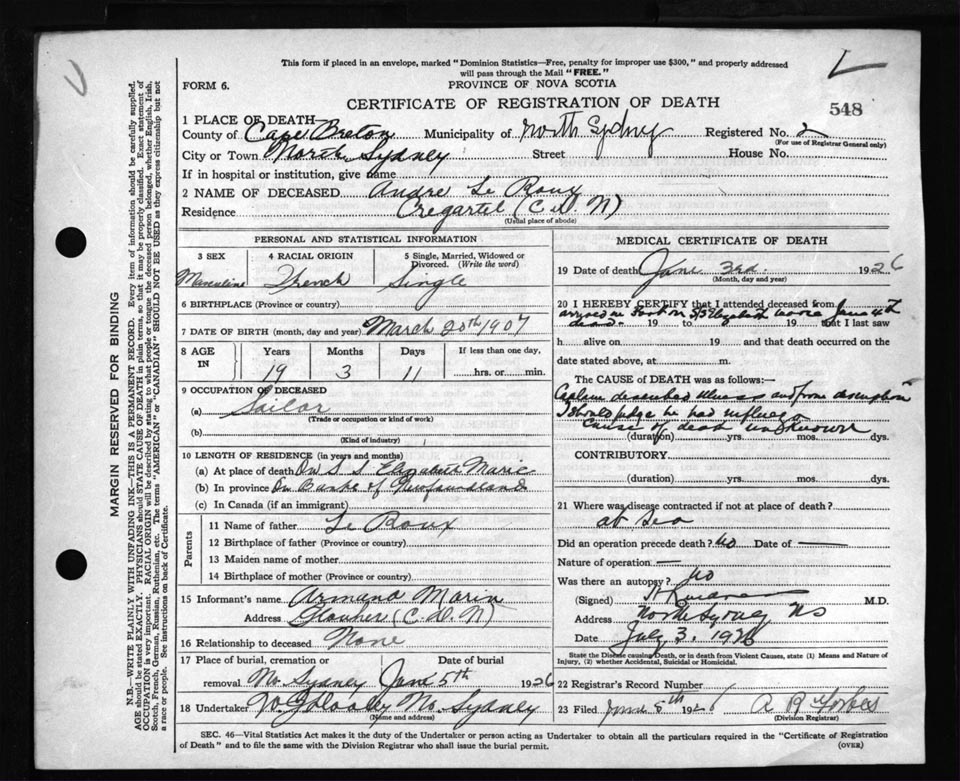 This form if placed in an envelope, marked "Dominion Statistics—Free, penalty for improper use $300," and properly addressed
will pass through the Mail "FREE."
FORM 6.
PROVINCE OF NOVA SCOTIA
CERTIFICATE OF REGISTRATION OF DEATH
548
1 PLACE OF DEATH—
County of Cape Breton Municipality of North Sydney Registered No. 2
(For use of Registrar General only)
City or Town North Sydney Street House No.
If in hospital or institution, give name
2 NAME OF DECEASED Andre Le Roux
Residence (C.D.N)
(Usual place of abode)
PERSONAL AND STATISTICAL INFORMATION
3 SEX 4 RACIAL ORIGIN 5 Single, Married, Widowed or
Divorced. (Write the word)
Masculine French Single
6 BIRTHPLACE (Province or country)
7 DATE OF BIRTH (month, day and year) March 20th 1907
8 AGE IN Years Months Days If less than one day,
19 3 11 hrs. or min.
9 OCCUPATION OF DECEASED
(a) Sailor
(Trade or occupation or kind of work)
(b)
(Kind of industry)
10 LENGTH OF RESIDENCE (in years and months)
(a) At place of death On S S Elizabeth Marie
(b) In province On Banks of Newfoundland
(c) In Canada (if an immigrant)
Parents
11 Name of father Le Roux
12 Birthplace of father (Province or country)
13 Maiden name of mother
14 Birthplace of mother (Province or country)
15 Informant's name Armand Marin
Address (C.D.N)
16 Relationship to deceased None
17 Place of burial, cremation or Date of burial
removal No. Sydney June 5th 1926
18 Undertaker No. Sydney
(Name and address)
MEDICAL CERTIFICATE OF DEATH
19 Date of death June 3rd. 1926
(Month, day and year)
20 I HEREBY CERTIFY that I attended deceased from
arrived in Port on SS Elizabeth June 4th
dead 19 to 19 that I last saw
h alive on 19 and that death occurred on the
date stated above, at m.
The CAUSE OF DEATH was as follows:—
Captain described illness and from description
I should judge he had
Cause of death unknown
(duration) yrs. mos. dys.
CONTRIBUTORY
(duration) yrs. mos. dys.
21 Where was disease contracted if not at place of death?
at Sea
Did an operation precede death? No Date of —
Nature of operation —
Was there an autopsy? No
(Signed) M.D.
Address North Sydney NS
Date July 3, 1926
State the Disease causing Death, or in death from Violent Causes, state (1) Means and Nature of
Injury, (2) whether Accidental, Suicidal or Homicidal.
22 Registrar's Record Number
23 Filed 5th 1926 A R Forbes
(Division Registrar)
SEC. 46—Vital Statistics Act makes it the duty of the Undertaker or person acting as Undertaker to obtain all the particulars required in the "Certificate of Registration
of Death" and to file the same with the Division Registrar who shall issue the burial permit.
(OVER)
MARGIN RESERVED FOR BINDING
N.B.—WRITE PLAINLY WITH UNFADING INK—THIS IS A PERMANENT RECORD. Every item of information should be carefully supplied.
AGE should be stated EXACTLY. PHYSICIANS should STATE CAUSE OF DEATH in plain terms, so that it may be properly classified. Exact statement of
OCCUPATION is very important. RACIAL ORIGIN will be described by stating to what people or tongue the deceased person belonged, whether English, Irish,
Scotch, French, German, Russian, Ruthenian, etc. The terms "AMERICAN" or "CANADIAN" SHOULD NOT BE USED as they express citizenship but not
a race or people. See instructions on back of Certificate.